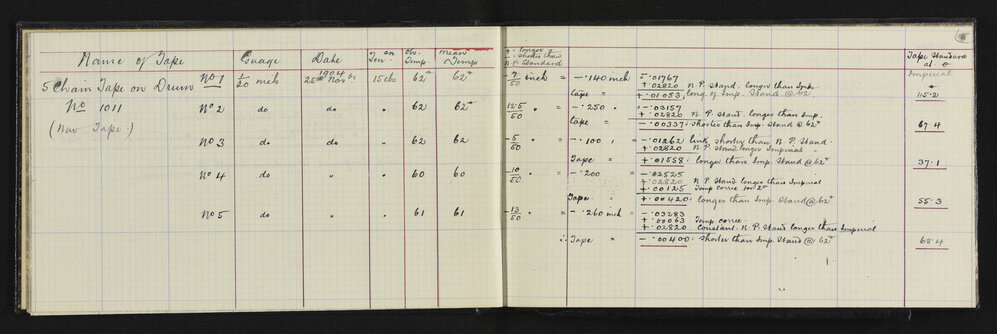 Name of Tape Guage Date Ten on Obs. Temp mean Temp + = longer - = shorter than N.P. Standard Tape Standard at °
Imperial
5 Chain Tape on Drum No 1 1/20 inch 25th Nov 1904 15 lbs 62° 62° -7/50 inch = -·140 inch = -·01767
+·02820 N.P. Stand. longer than Imp.
Tape = +·01053 long of Imp. Stand. @ 62 45·2
No 1011 No 2 do do " 62 62° -12·5/50 " = -·250 " = -·03157
(New Tape.) +·02820 N.P. Stand. longer than Imp.
Tape = -·00337 shorter than Imp. Stand @ 62° 67·4
No 3 do do " 62 62 -5/50 " = -·100 " = -·01262 link shorter than N.P. Stand.
+·02820 N.P. Stand longer Imperial "
Tape = +·01558 longer than Imp. Stand @ 62° 37·1
No 4 do " " 60 60 -10/50 " = -·200 = -·02525
+·02820 N.P. Stand longer than Imperial
+·00125 Temp corrc. for 2°
Tape = +·00420 longer than Imp. Stand @ 62° 55·3
No 5 do " " 61 61 -13/50 " = -·260 inch = -·03283
+·00063 Temp corrc.
+·02820 Constant. N.P. Stand longer than Imperial
∴ Tape = -·00400 shorter than Imp. Stand @ 62° 68·4